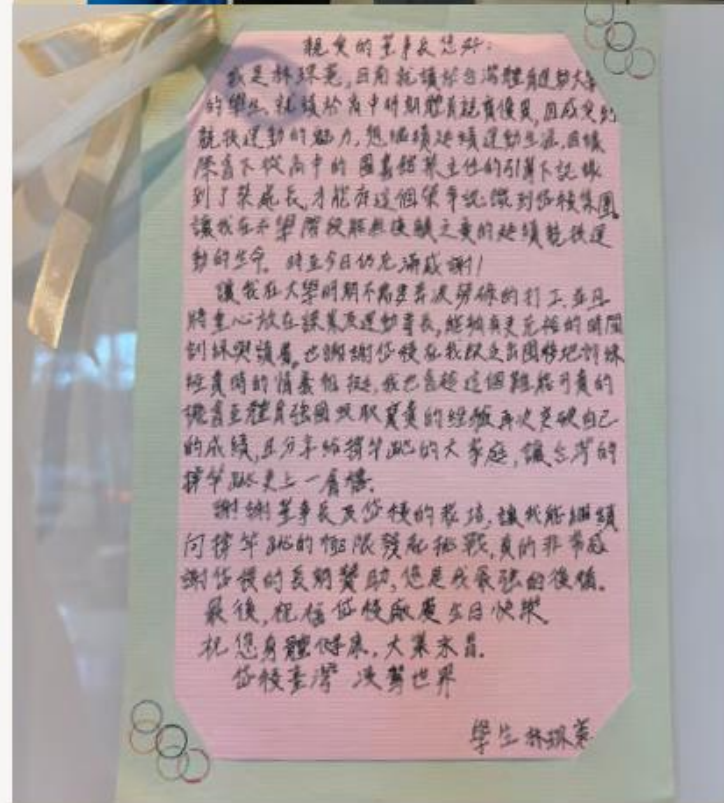 親愛的董事長您好:
我是林珠羨,目前就讀於台灣體育運動大學
的學生,就讀於高中時期體育競賽優異,因感受到
競技運動的魅力,想繼續延續運動生涯,因緣
際會下從高中的圖書館蔡主任的引薦下認識
到了蔡處長,才能有這個榮幸認識到岱稜集團,
讓我在大學階段能無後顧之憂的延續競技運
動的生命。時至今日仍充滿感謝!
讓我在大學時期不需要奔波勞碌的打工,並且
將重心放在課業及運動專長,能夠有更充裕的時間
訓練與讀書,也謝謝岱稜在我缺乏出國移地訓練
經費時的情義相挺,我也會趁這個難能可貴的
機會至體育強國吸取寶貴的經驗再次突破自己
的成績,且分享給撐竿跳的大家庭,讓台灣的
撐竿跳更上一層樓。
謝謝董事長及岱稜的栽培,讓我能繼續
向撐竿跳的極限發起挑戰,真的非常感
謝岱稜的長期贊助,您是我最強的後盾。
最後,祝福岱稜廠慶生日快樂,
祝您身體健康,大業永昌。
岱稜臺灣 決勝世界
學生 林珠羨